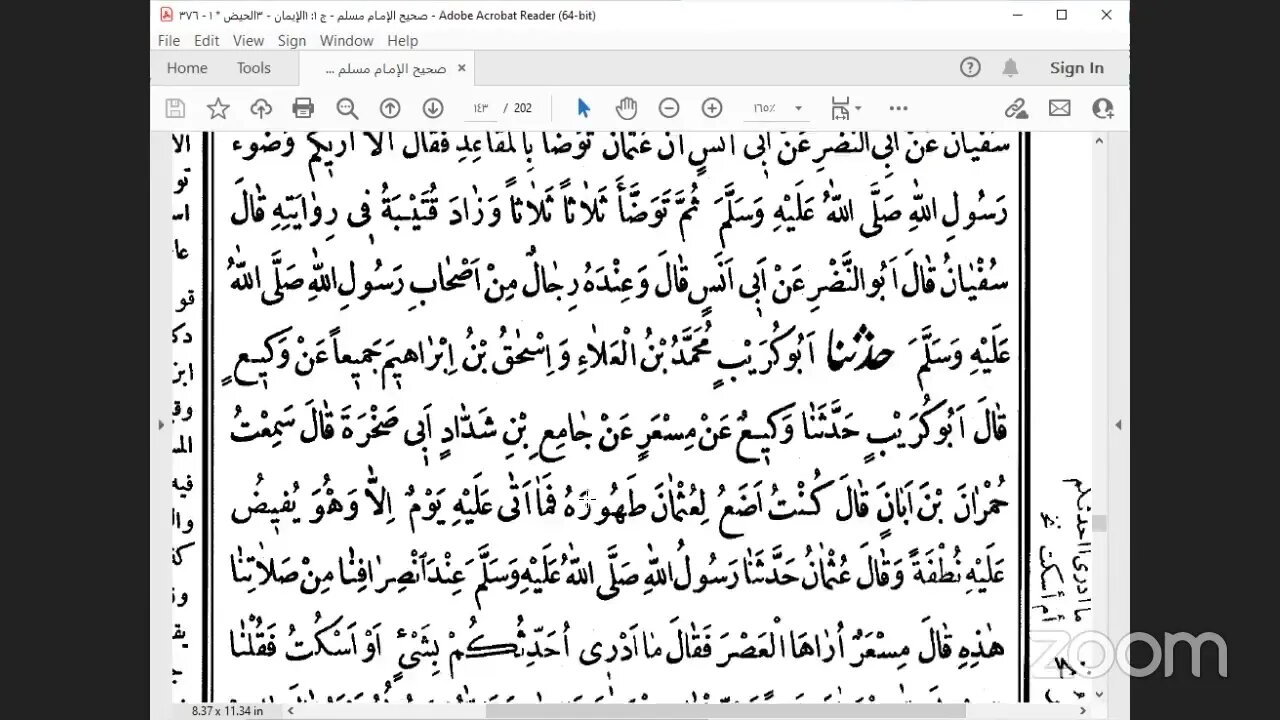 صحيح الإمام مسلم - ج ١: ١الإيمان - ٣الحيض * ١ - ٣٧٦ - Adobe Acrobat Reader (64-bit)
File Edit View Sign Window Help
Home Tools صحيح الإمام مسلم ... Sign In
١٤٣ / 202 ١٦٥٪
سُفْيَانَ عَنْ أَبِى النَّضْرِ عَنْ أَبِى أَنَسٍ أَنَّ عُثْمَانَ تَوَضَّأَ بِالْمَقَاعِدِ فَقَالَ أَلاَ أُرِيكُمْ وُضُوءَ
رَسُولِ اللهِ صَلَّى اللهُ عَلَيْهِ وَسَلَّمَ ثُمَّ تَوَضَّأَ ثَلاَثاً ثَلاَثاً وَزَادَ قُتَيْبَةُ فِى رِوَايَتِهِ قَالَ
سُفْيَانُ قَالَ اَبُو النَّضْرِ عَنْ اَبِى اَنَسٍ قَالَ وَعِنْدَهُ رِجَالٌ مِنْ اَصْحَابِ رَسُولِ اللهِ صَلَّى اللهُ
عَلَيْهِ وَسَلَّمَ حدثنا اَبُو كُرَيْبٍ مُحَمَّدُ بْنُ الْعَلاَءِ وَ اِسْحٰقُ بْنُ اِبْرَاهِيمَ جَمِيعاً عَنْ وَكِيعٍ
قَالَ اَبُو كُرَيْبٍ حَدَّثَنَا وَكِيعٌ عَنْ مِسْعَرٍ عَنْ جَامِعِ بْنِ شَدَّادٍ اَبِى صَخْرَةَ قَالَ سَمِعْتُ
حُمْرَانَ بْنَ اَبَانٍ قَالَ كُنْتُ اَضَعُ لِعُثْمَانَ طَهُورَهُ فَمَا اَتٰى عَلَيْهِ يَوْمٌ اِلاَّ وَهُوَ يُفِيضُ
عَلَيْهِ نُطْفَةً وَقَالَ عُثْمَانُ حَدَّثَنَا رَسُولُ اللهِ صَلَّى اللهُ عَلَيْهِ وَسَلَّمَ عِنْدَ انْصِرَافِنَا مِنْ صَلاَتِنَا
هٰذِهِ قَالَ مِسْعَرٌ اُرَاهَا الْعَصْرَ فَقَالَ مَا اَدْرِى اُحَدِّثُكُمْ بِشَىْءٍ اَوْ اَسْكُتُ فَقُلْنَا
ما ادرى أحدثكم
أم أسكت نخ
zoom
8.37 x 11.34 in